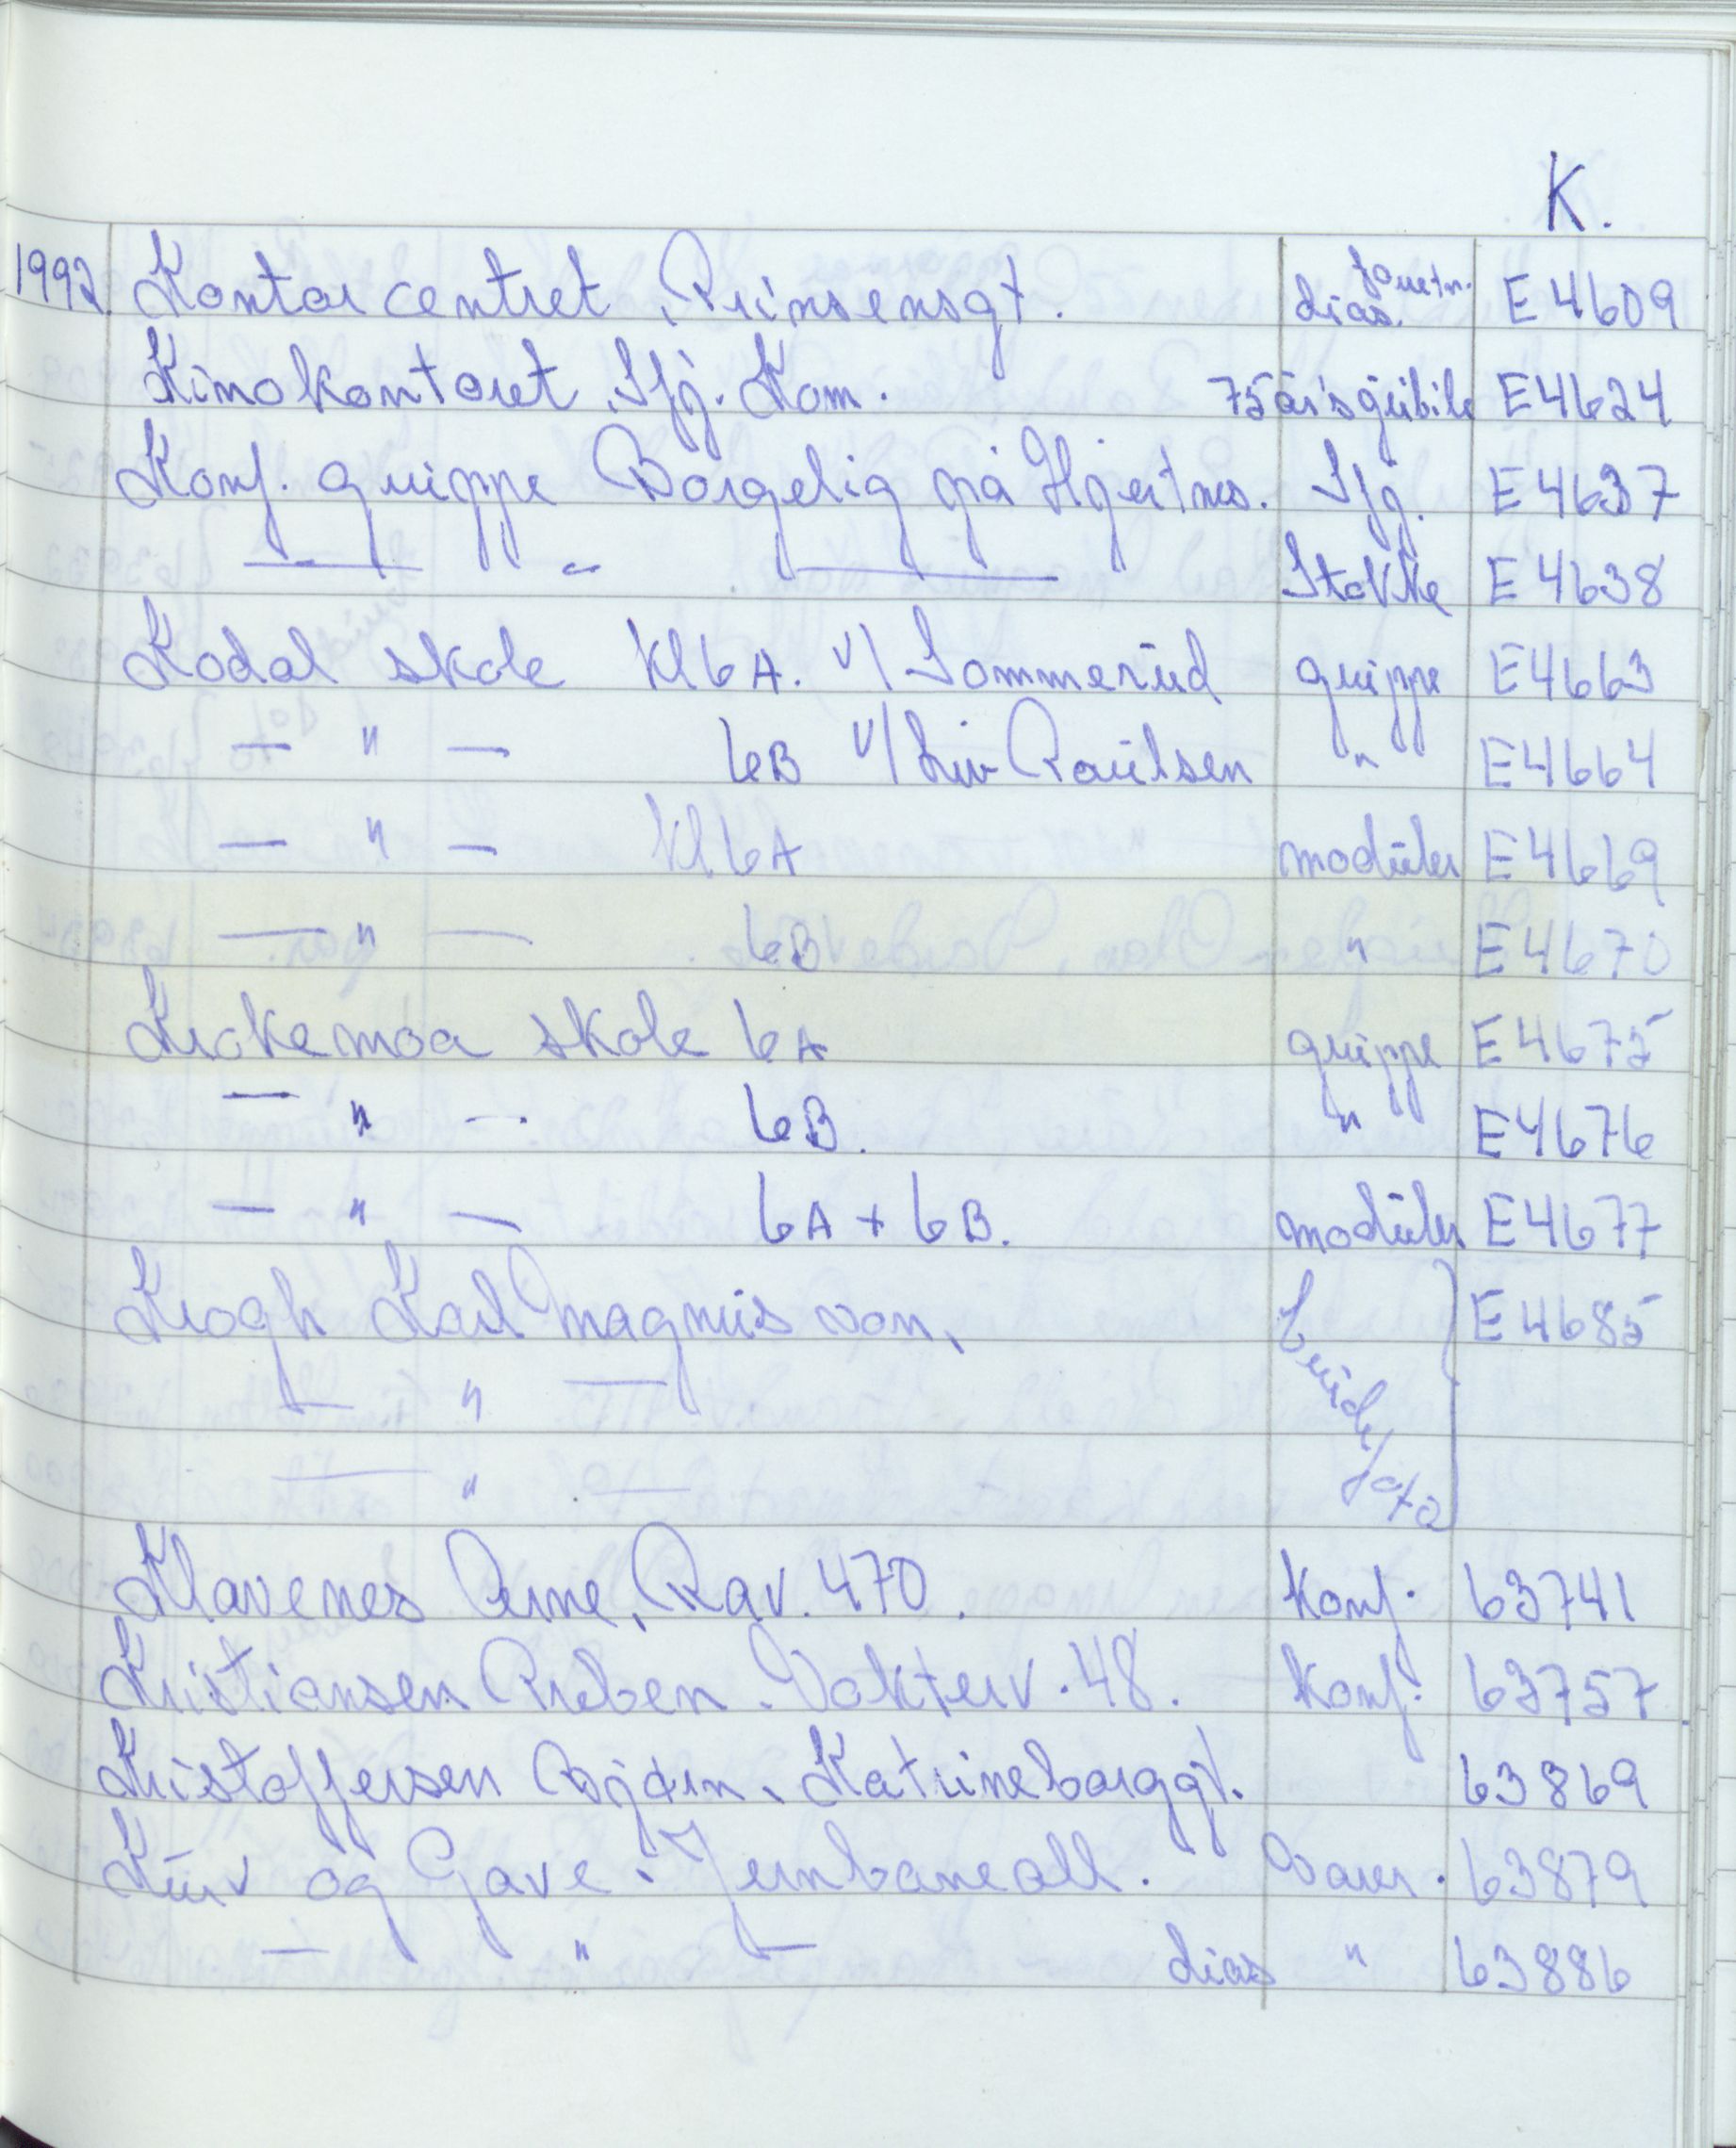 K.
1992 Kontorcentret, Prinsensgt. dias. forretn. E4609
Kinokontoret, Sfj. Kom. 75 års jubile E4624
Konf. gruppe Borgelig på Hjertnes. Sfj. E4637
— " — Stokke E4638
Kodal skole kl 6A. v/ Sommerud gruppe E4663
— " — 6B v/ Liv Paulsen " E4664
— " — kl 6A moduler E4669
— " — 6B " E4670
Krokemoa skole 6A gruppe E4675
— " — 6B. " E4676
— " — 6A + 6B. moduler E4677
Krogh Karl Magnus von, brudefoto } E4685
— " —
— " —
Klavenes Arne, Rav. 470. Konf. 63741
Kristiansen Preben. Vokterv. 48. Konf. 63757.
Kristoffersen Bjørn, Katrineborggt. 63869
Kurv og Gave. Jernbaneall. Varer. 63879
— " — dias " 63886